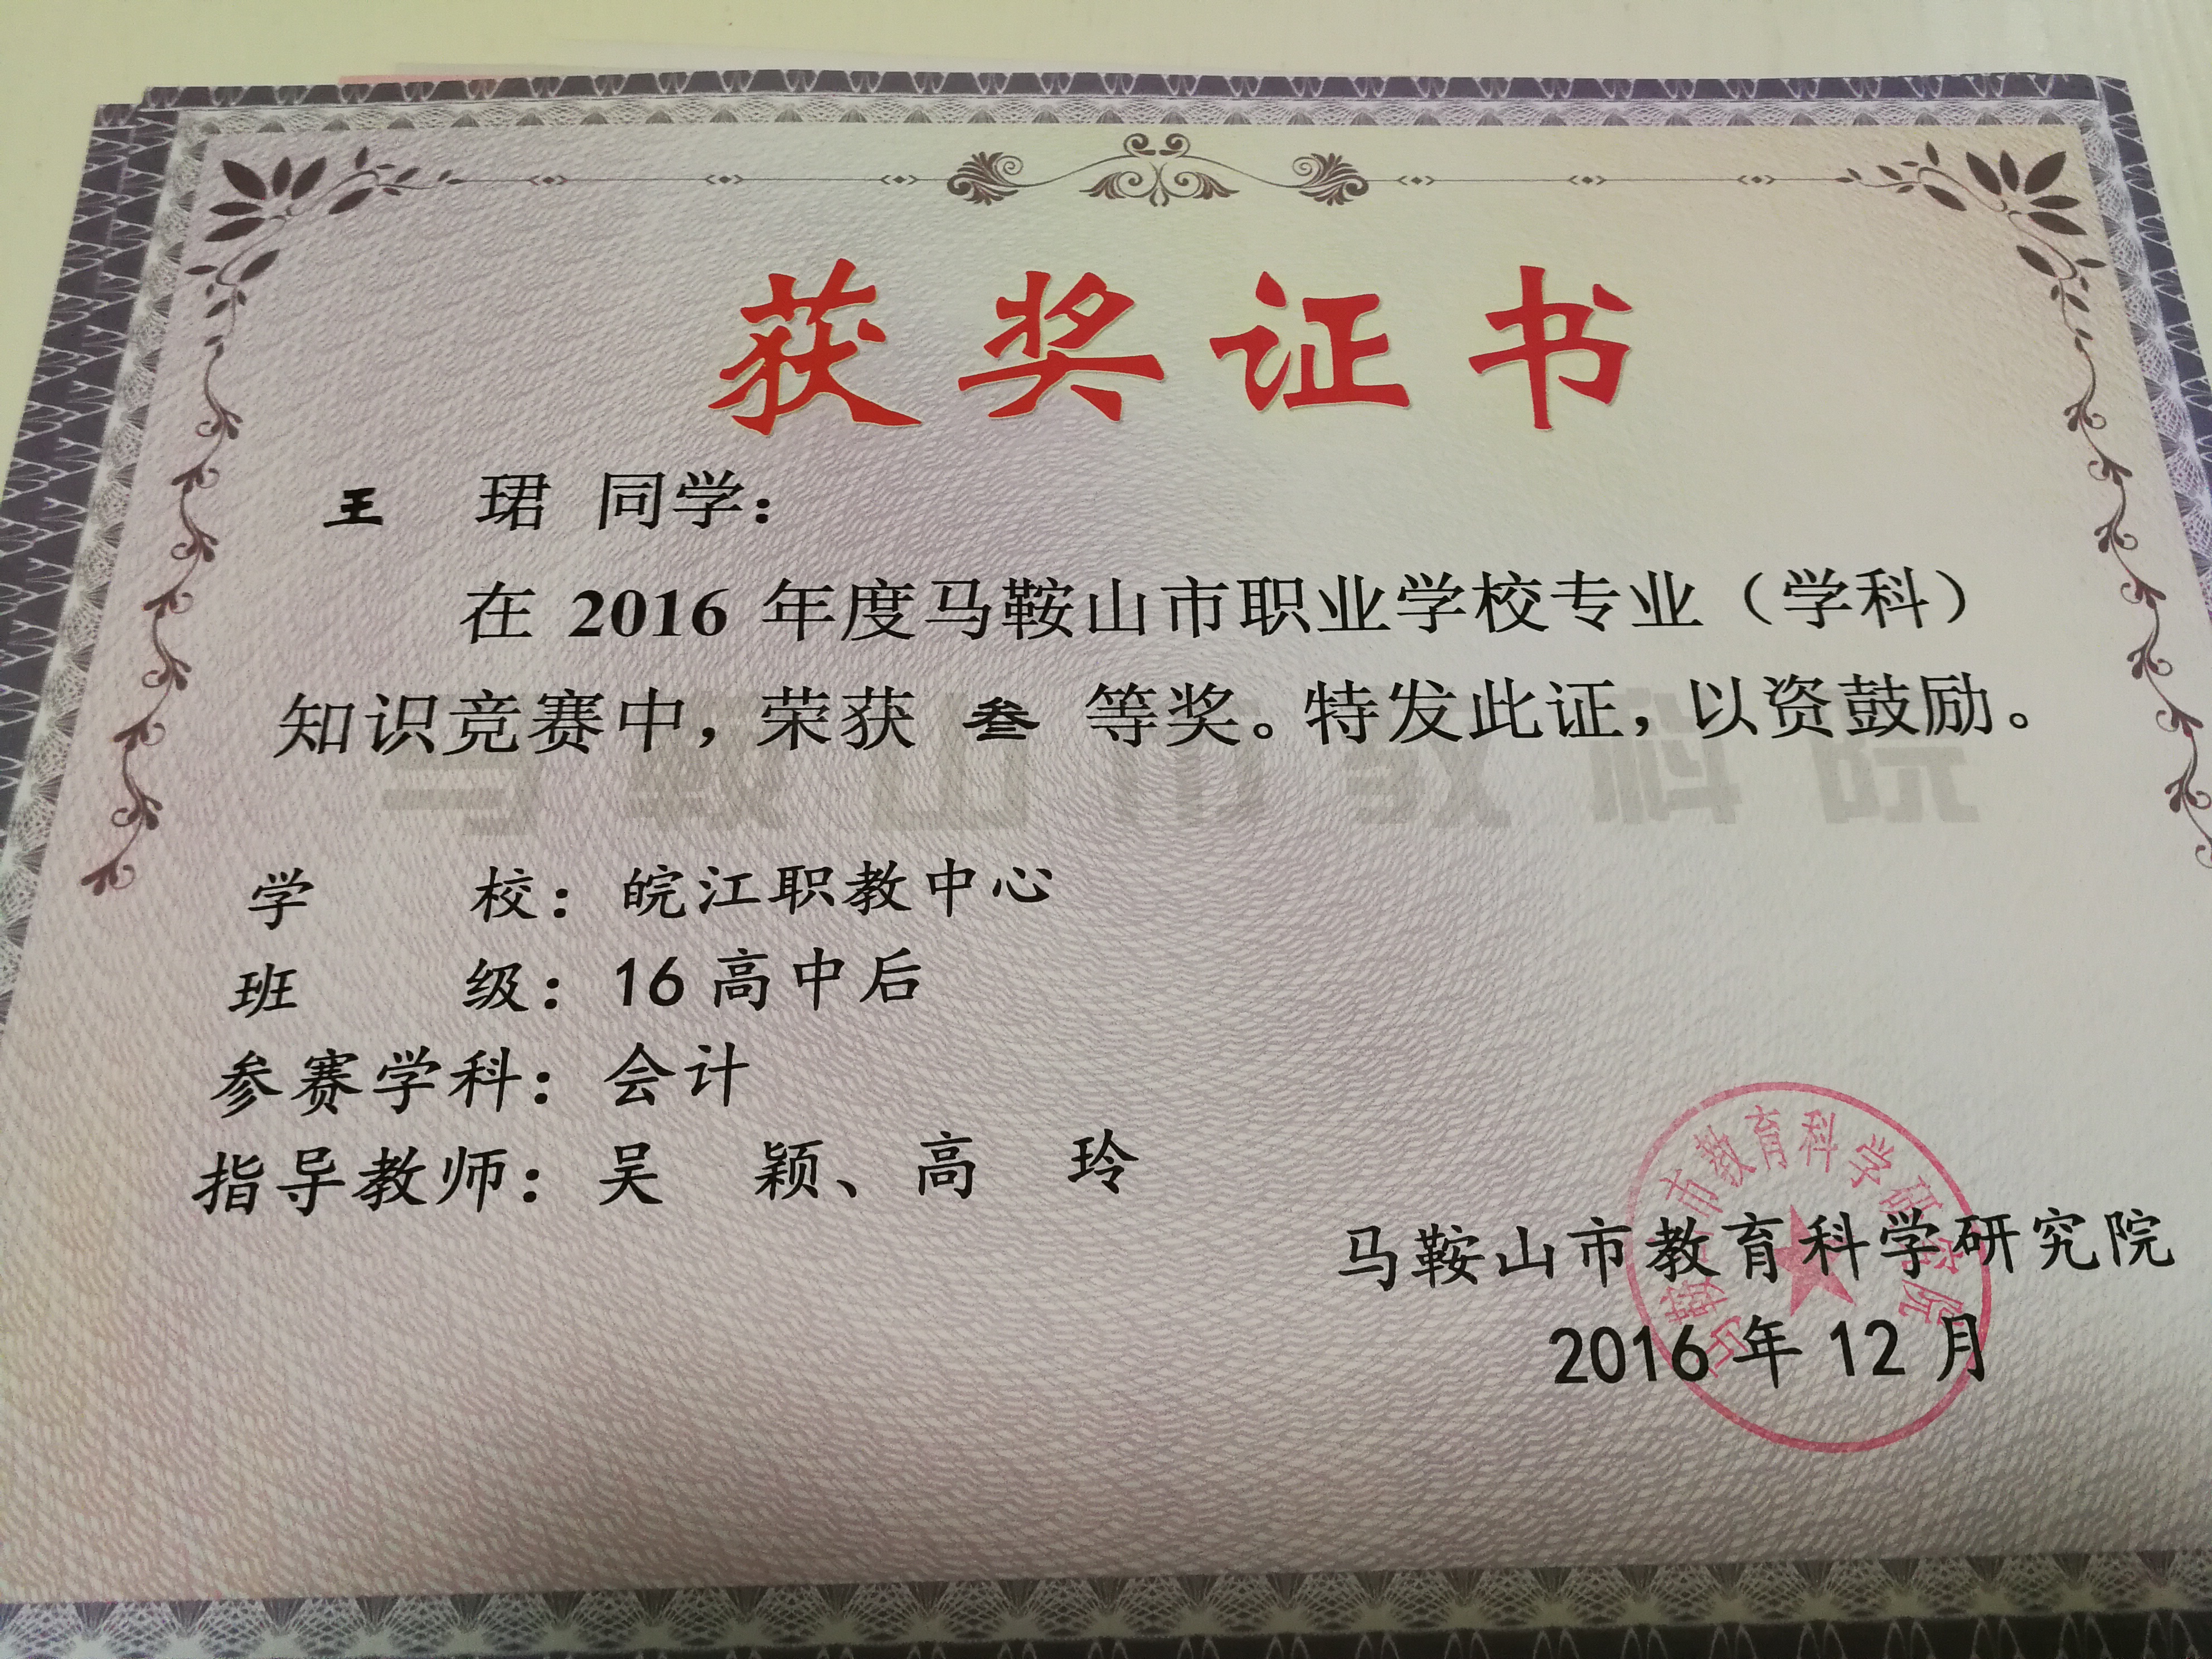 获奖证书
王 珺 同学：
在 2016 年度马鞍山市职业学校专业（学科）
知识竞赛中，荣获 叁 等奖。特发此证，以资鼓励。
学 校：皖江职教中心
班 级：16 高中后
参赛学科：会计
指导教师：吴 颖、高 玲
马鞍山市教育科学研究院
2016 年 12 月
马鞍山市教育科学研究院